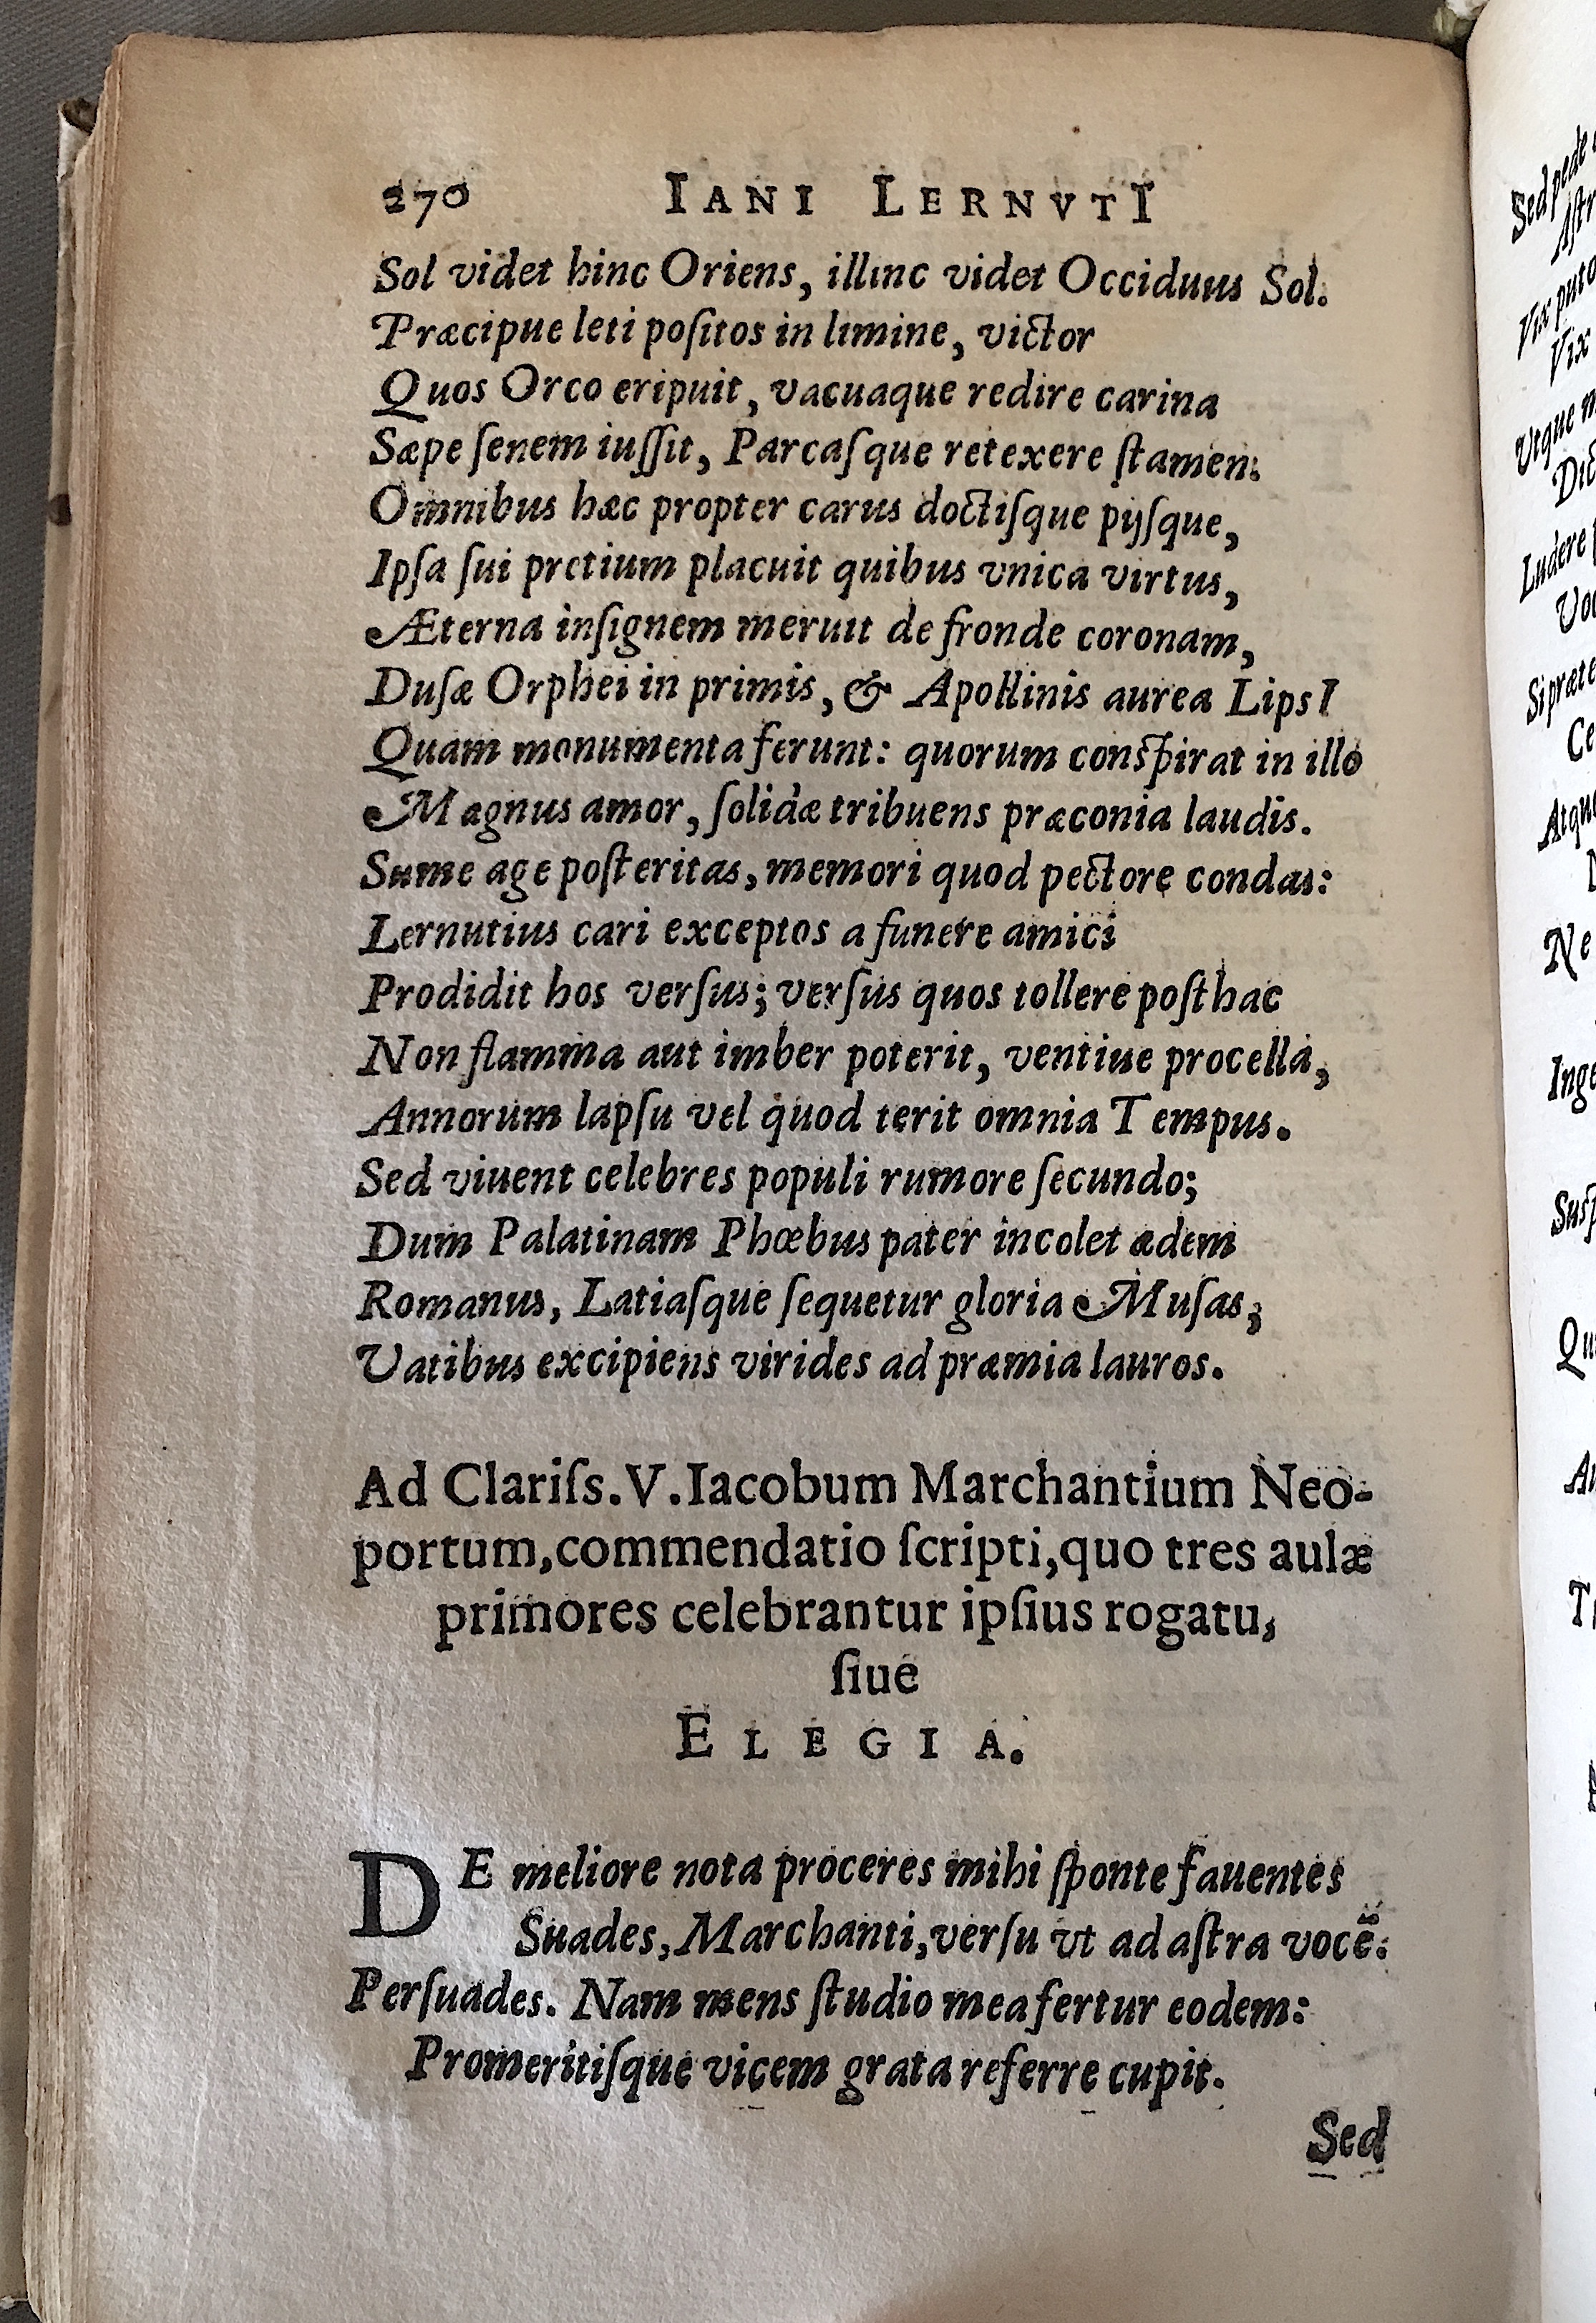 270 IANI LERNVTI
Sol videt hinc Oriens, illinc videt Occiduus Sol.
Præcipue leti poſitos in limine, victor
Quos Orco eripuit, vacuaque redire carina
Sæpe ſenem iuſſit, Parcaſque retexere ſtamen.
Omnibus hæc propter carus doctiſque pijſque,
Ipſa ſui pretium placuit quibus vnica virtus,
Æterna inſignem meruit de fronde coronam,
Duſæ Orphei in primis, & Apollinis aurea LipsI
Quam monumenta ferunt: quorum conſpirat in illo
Magnus amor, ſolidæ tribuens præconia laudis.
Sume age poſteritas, memori quod pectore condas:
Lernutius cari exceptos a funere amici
Prodidit hos verſus; verſus quos tollere poſthac
Non flamma aut imber poterit, ventiue procella,
Annorum lapſu vel quod terit omnia Tempus.
Sed viuent celebres populi rumore ſecundo;
Dum Palatinam Phœbus pater incolet ædem
Romanus, Latiaſque ſequetur gloria Muſas;
Vatibus excipiens virides ad præmia lauros.
Ad Clariſs. V. Iacobum Marchantium Neo-
portum, commendatio ſcripti, quo tres aulæ
primores celebrantur ipſius rogatu,
ſiue
ELEGIA.
DE meliore nota proceres mihi ſponte fauentes
Suades, Marchanti, verſu vt ad aſtra vocē:
Perſuades. Nam mens ſtudio mea fertur eodem:
Promeritiſque vicem grata referre cupit.
Sed
Sed pede
Vix puto
Vix
Vtque
Ludere
Si præte
Ce
Atqu
Ne
Inge
Suſp
Qu